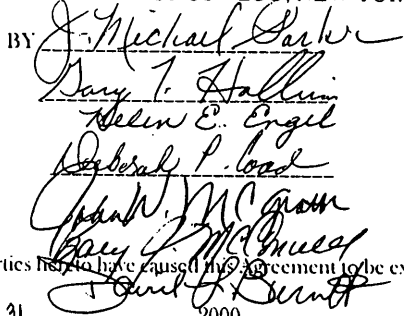 BY J. Michael Parker
Gary T. Hallium
Helen E. Engel
Deborah P. Load
John W. McGrath
Gary McConnell
ties hereto have caused this Agreement to be ex
David L. Burnett
31 2000